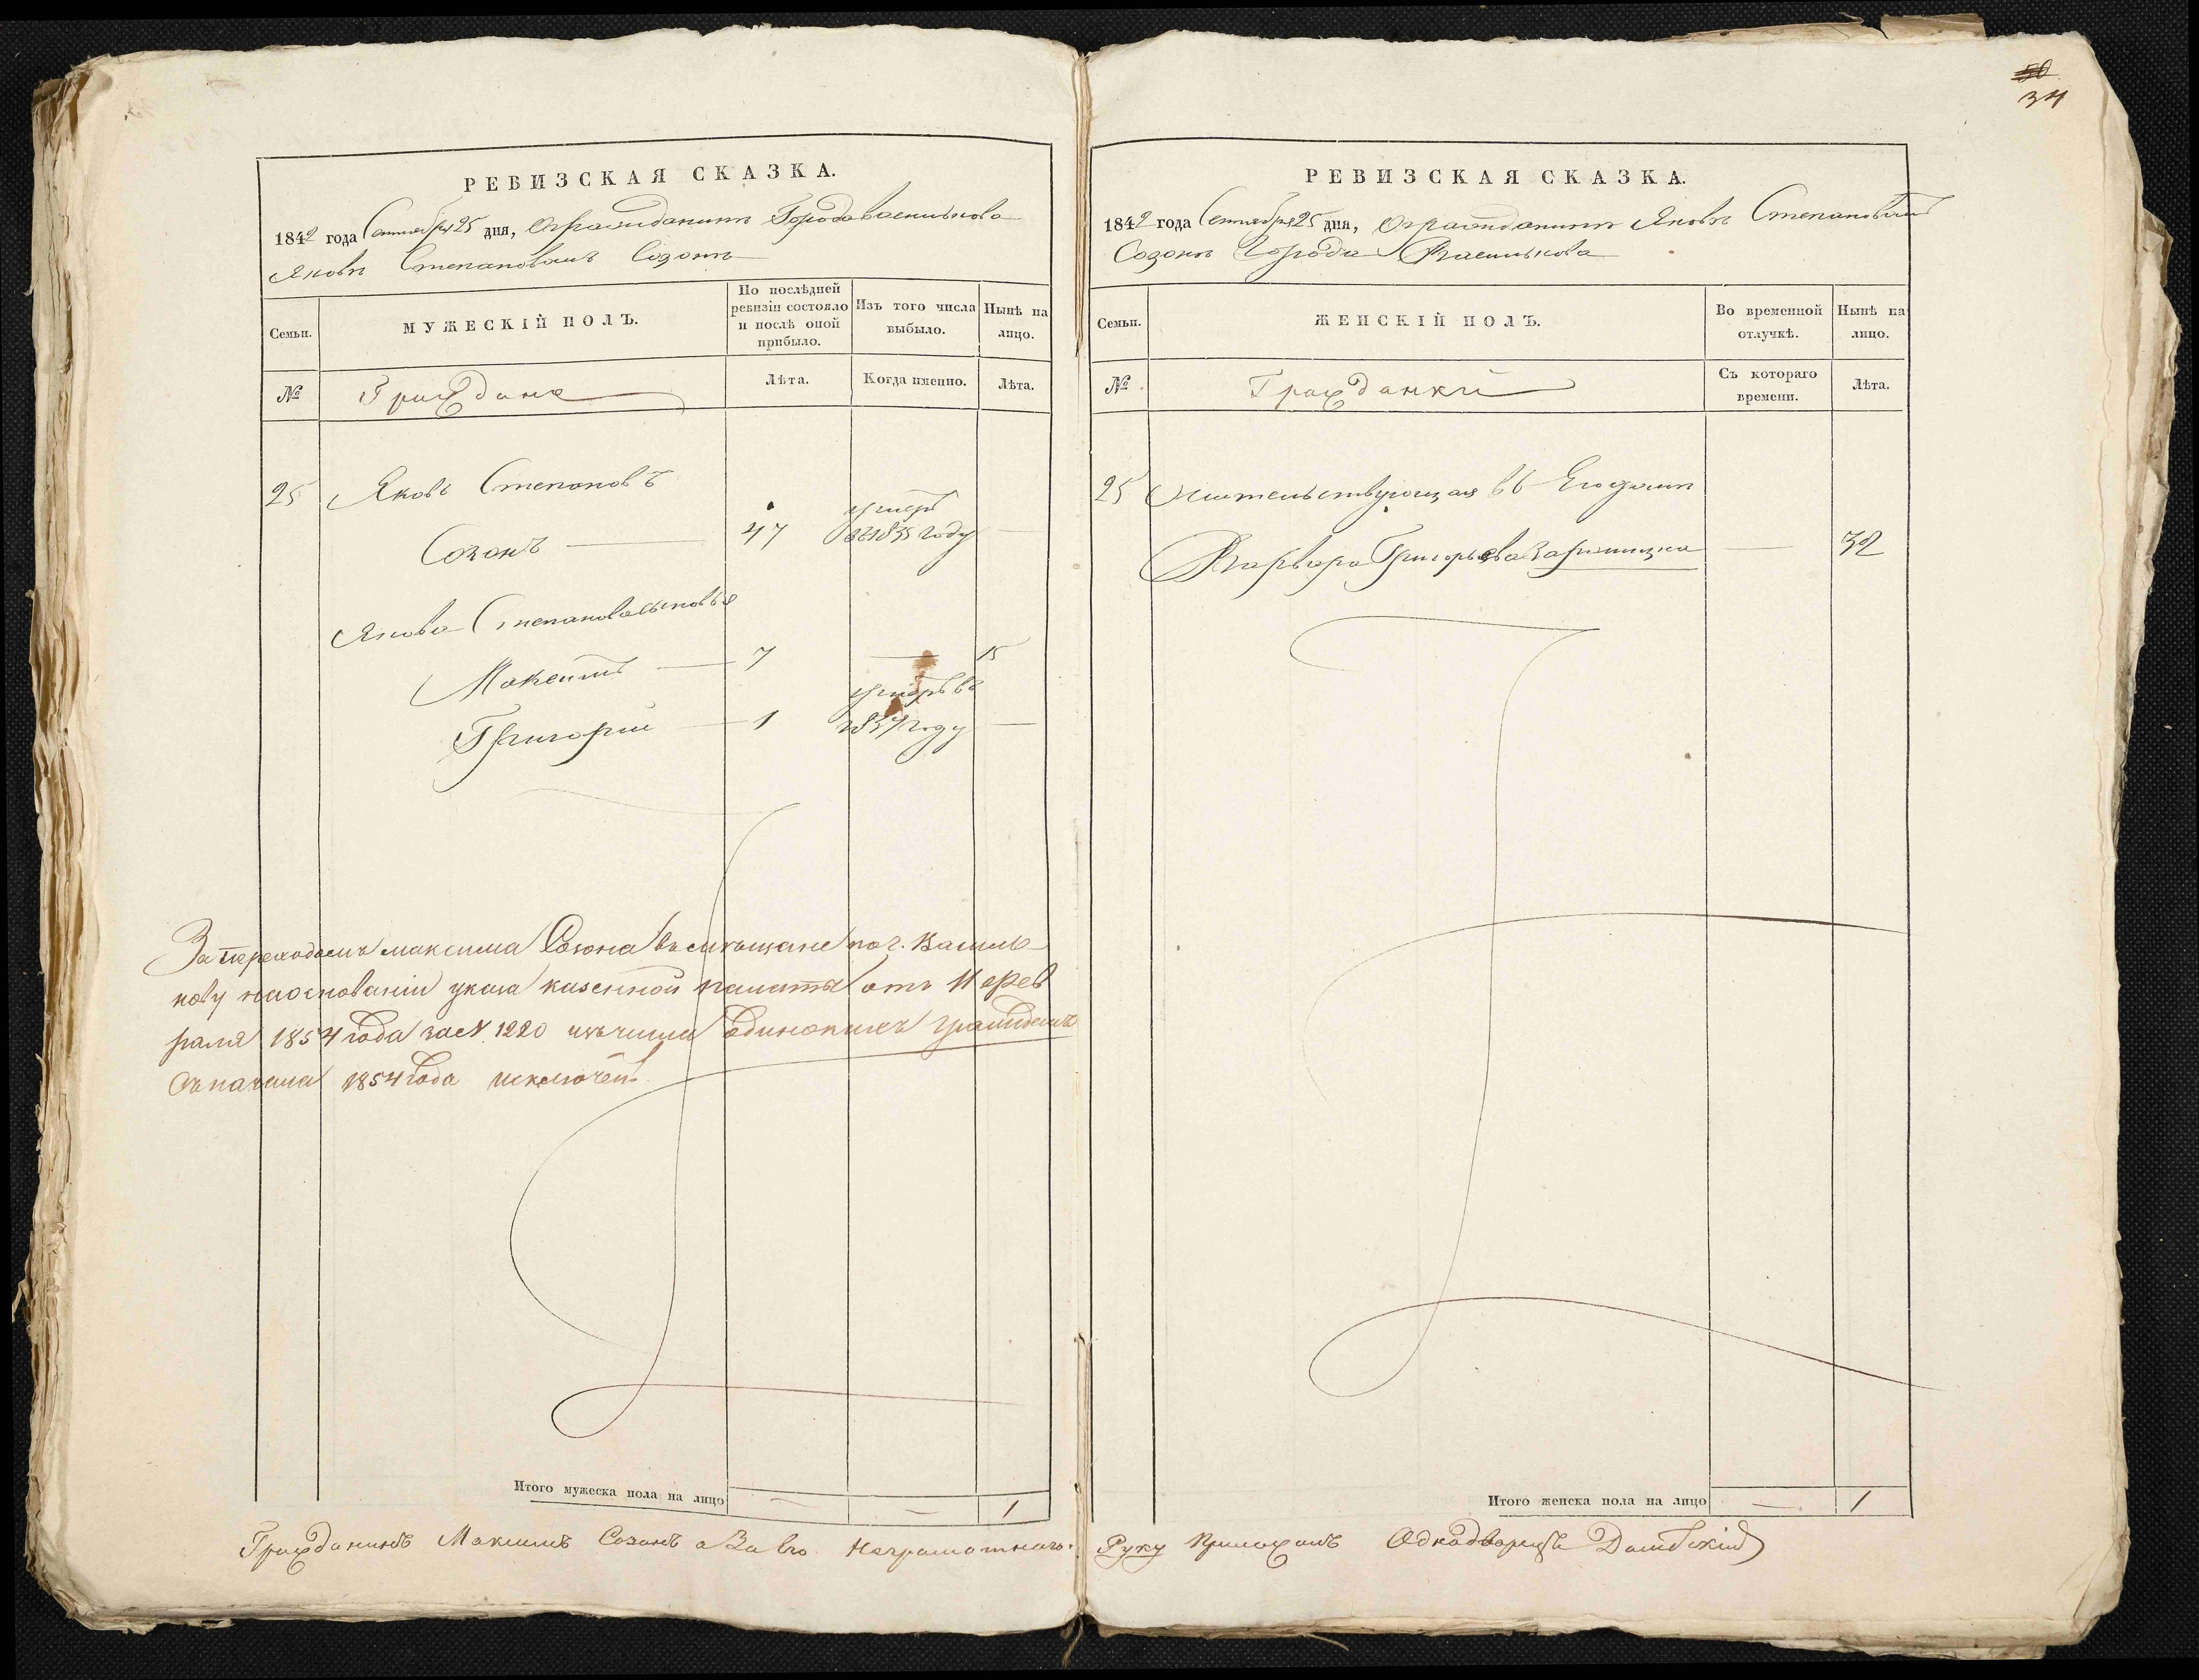 50
34
РЕВИЗСКАЯ СКАЗКА.
1842 года Сентября 25 дня, Огражданинѣ Города Василькова
Яковѣ Степановомъ Созонѣ
Семьи.
МУЖЕСКІЙ ПОЛЪ.
По послѣдней ревизіи состояло и послѣ оной прибыло.
Изъ того числа выбыло.
Нынѣ на лицо.
№
Граждане
Лѣта.
Когда именно.
Лѣта.
25 Яковъ Степановъ
Созонъ 47 умеръ въ 1835 году
Якова Степанова сыновья
Максимъ 7 15
Григорій 1 умеръ въ 1837 году
За переходомъ максима Созона въ мѣщане по г. Василь
кову на основаніи указа казенной палаты отъ 11 Фев
раля 1854 года за № 1220 изъ числа однихъ гражданъ
Съ начала 1854 года исключенъ.
Итого мужеска пола на лицо 1
Гражданинъ Максимъ Созонъ а За его Неграмотнаго
РЕВИЗСКАЯ СКАЗКА.
1842 года Сентября 25 дня, Огражданинѣ Яковѣ Степановомъ
Созонѣ Города Василькова
Семьи.
ЖЕНСКІЙ ПОЛЪ.
Во временной отлучкѣ.
Нынѣ на лицо.
№
Гражданки
Съ котораго времени.
Лѣта.
25 Жительствующая въ Его домѣ
Варвара Григорьева 32
Итого женска пола на лицо 1
Руку Приложилъ Однодворецъ